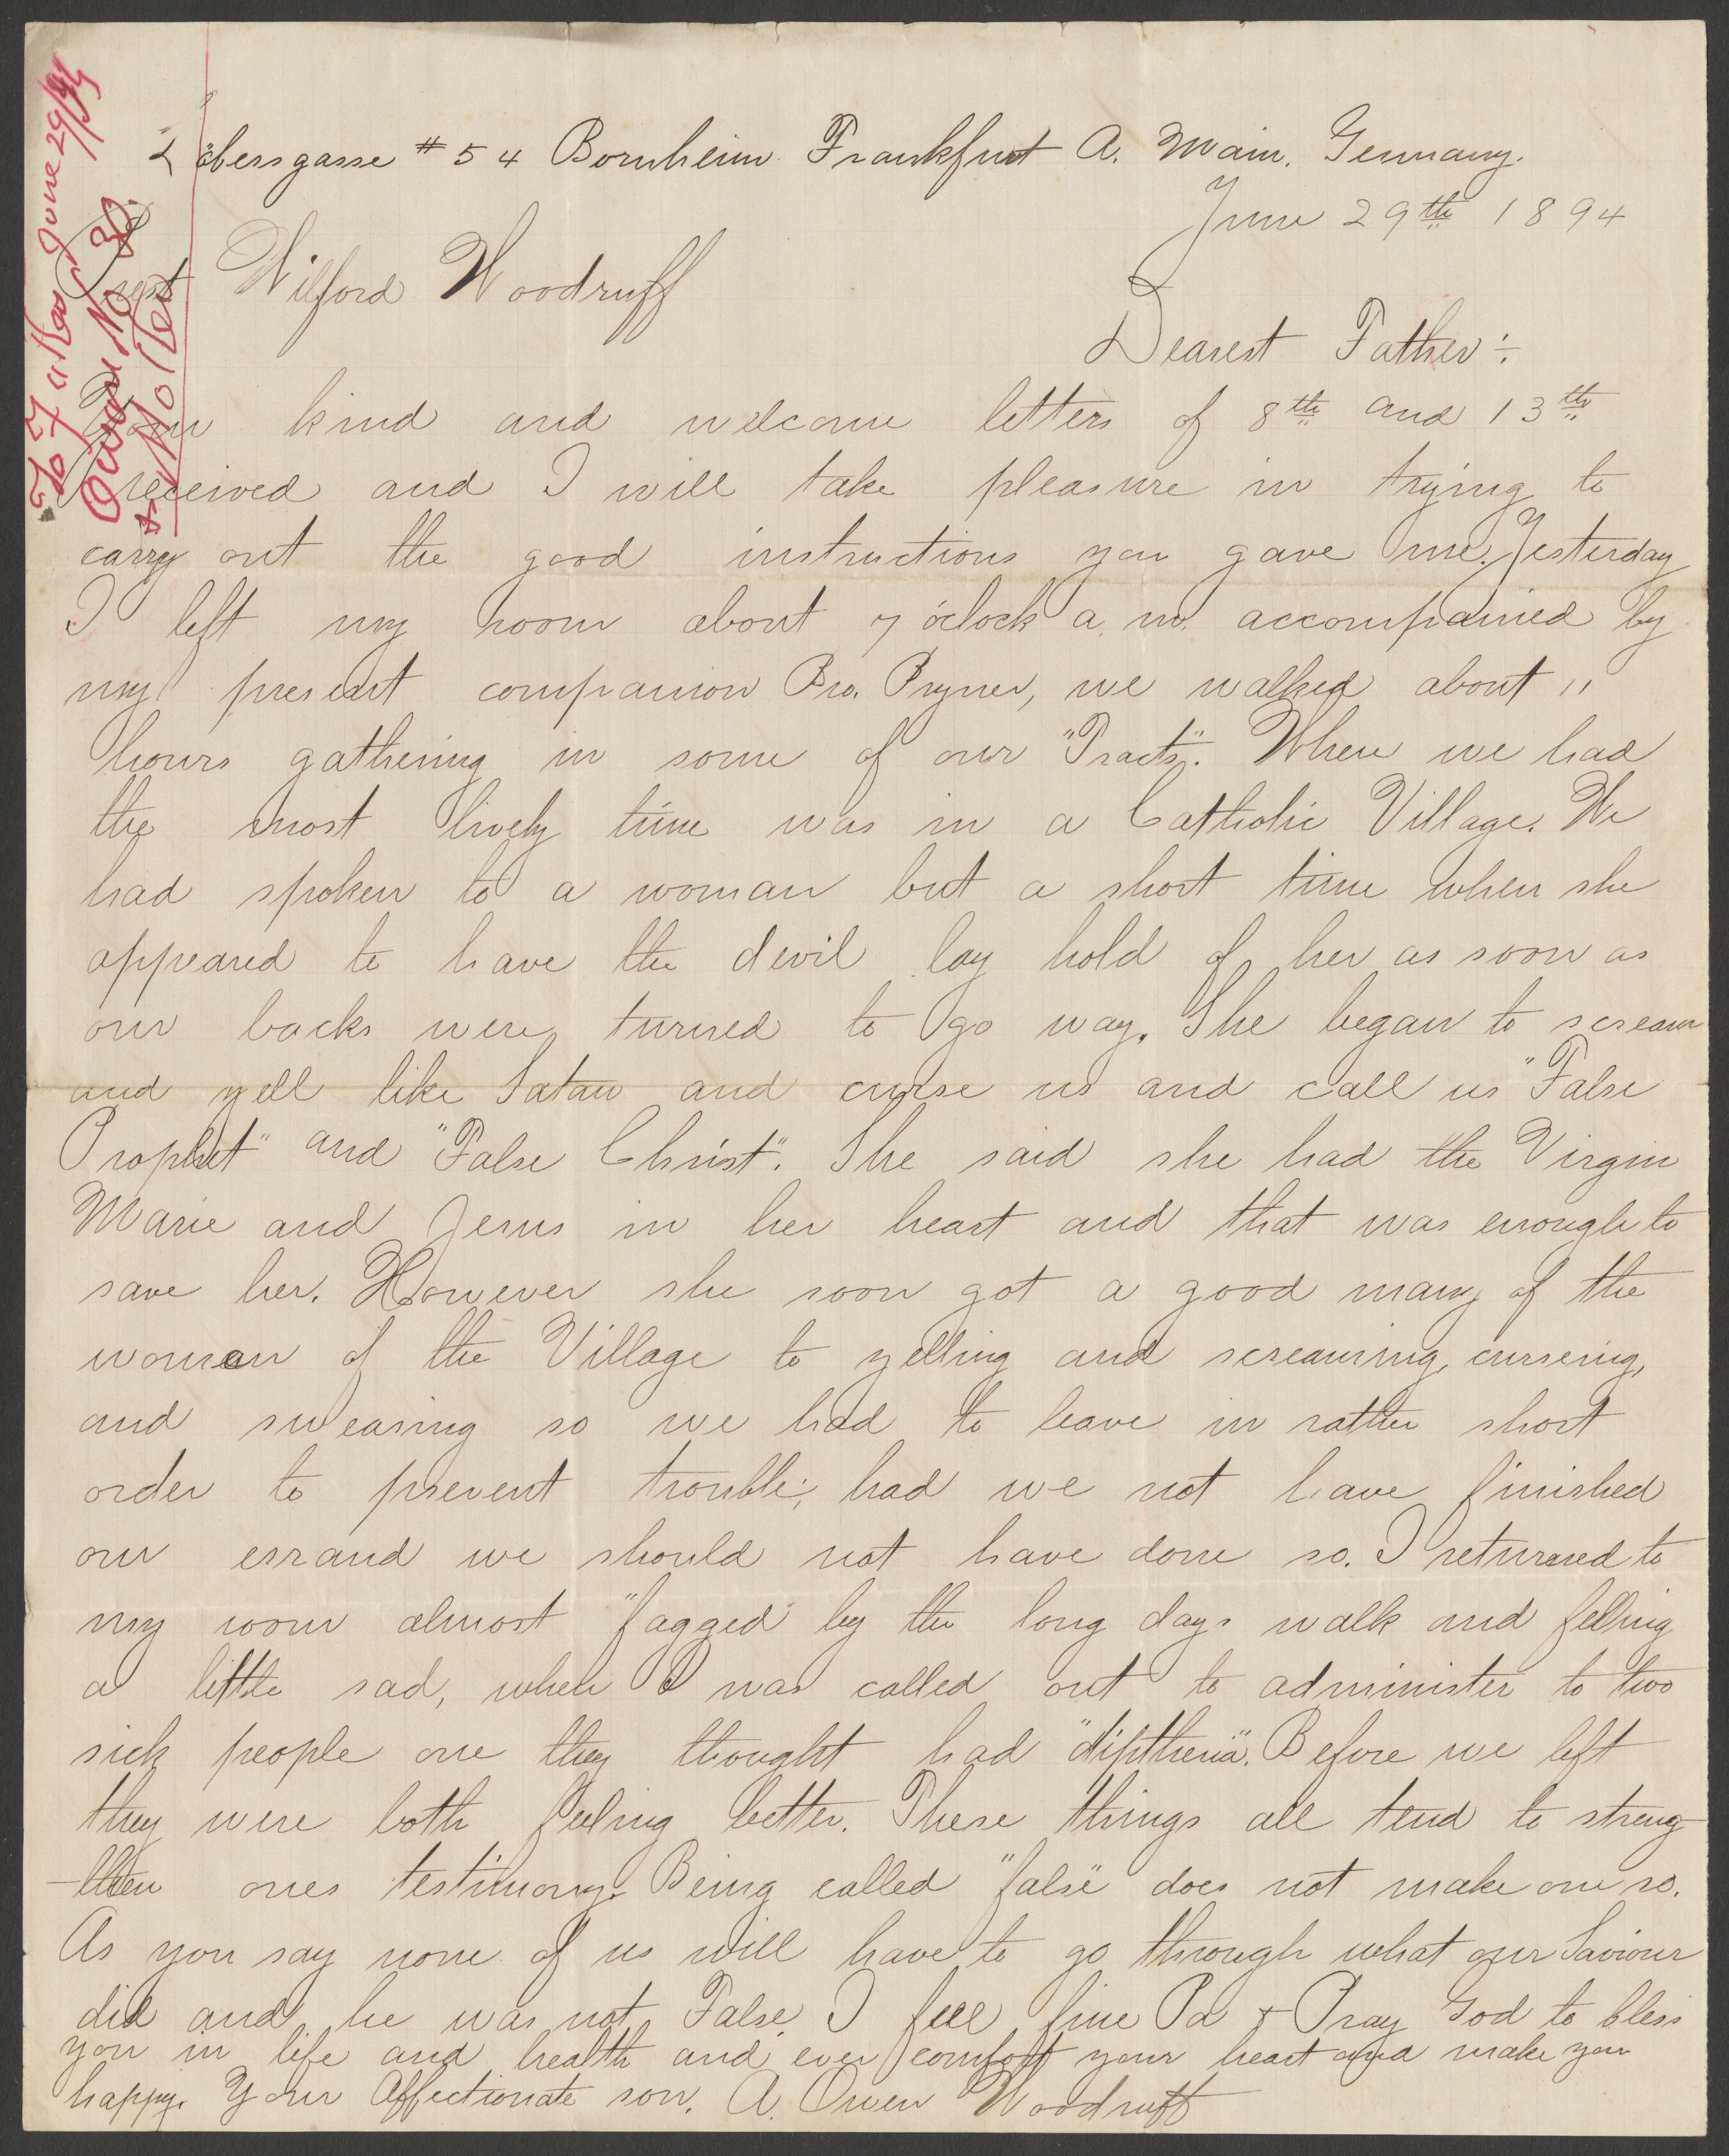 To Father June 29/94
Owen No 30
Löbersgasse #54 Bornheim Frankfurt A. Main. Germany.
June 29th 1894
Prest Wilford Woodruff
Dearest Father:
Your kind and welcome letters of 8th and 13th
received and I will take pleasure in trying to
carry out the good instructions you gave me. Yesterday
I left my room about 7 o'clock a. m. accompained by
my present companion Bro. Pryner, we walked about 11
hours gathering in some of our "Tracts". Where we had
the most lively time was in a Catholic Village. We
had spoken to a woman but a short time when she
appeared to have the devil lay hold of her as soon as
our backs were turned to go way. She began to scream
and yell like Satan and curse us and call us "False
Prophet" and "False Christ". She said she had the Virgin
Marie and Jesus in her heart and that was enough to
save her. However she soon got a good many of the
women of the Village to yelling and screaming, cursering,
and swearing so we had to leave in rather short
order to prevent trouble; had we not have finished
our errand we should not have done so. I returned to
my room almost "fagged" by the long days walk and felling
a little sad, when I was called out to administer to two
sick people one they thought had "diptheria". Before we left
they were both feeling better. These things all tend to streng
-then ones testimony. Being called "false" does not make one so.
As you say none of us will have to go through what our Saviour
did and he was not False. I feel fine Pa & Pray God to bless
you in life and health and ever comfort your heart and make you
happy. Your Affectionate son. A. Owen Woodruff